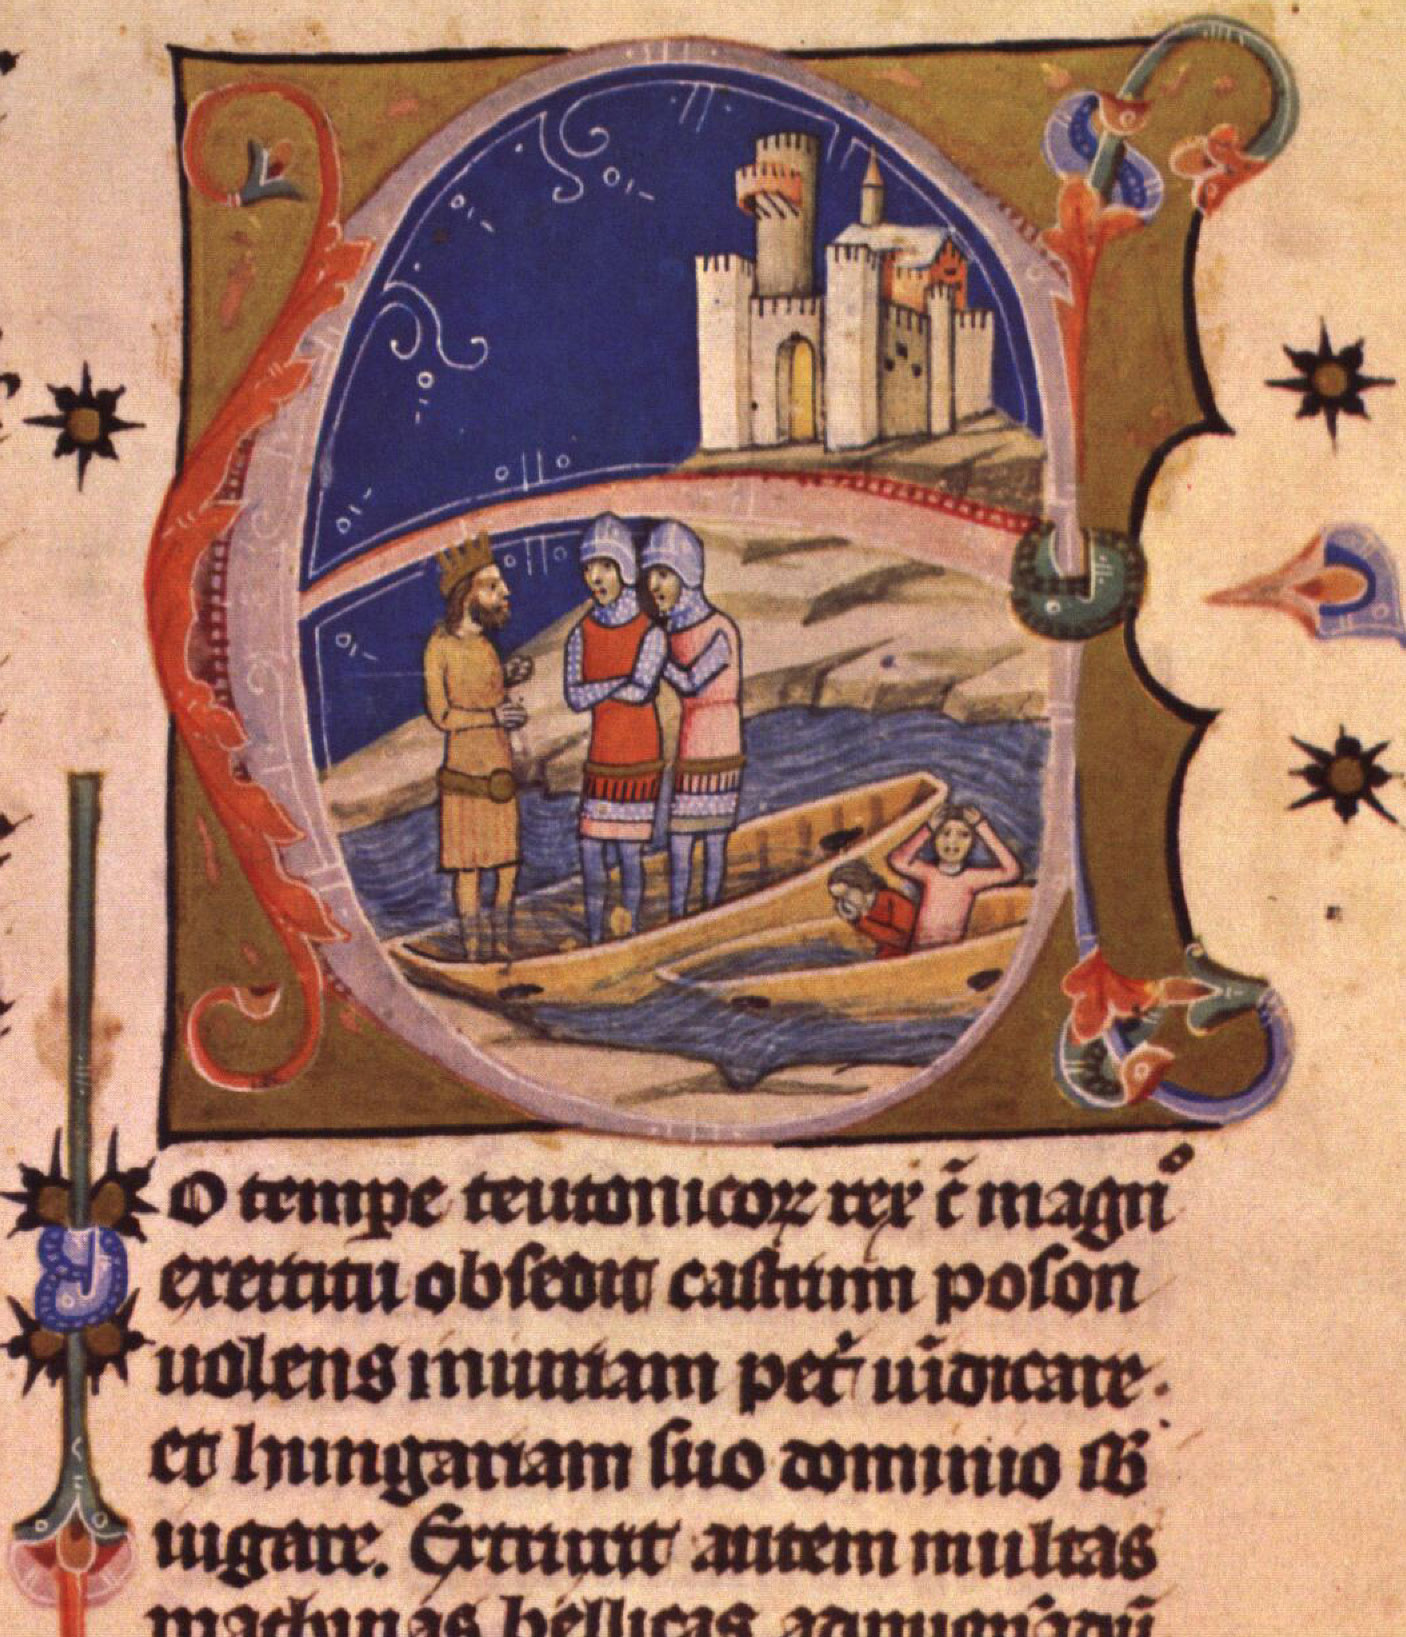 E
O tempe teutonicoꝝ rex cͥ magnͦ
exercitu obsedit castrum poson
uolens iniuriam petͥ uīdicare.
et hungariam suo dominio sb̄
iugare. Erexit autem multas
machinas bellicas